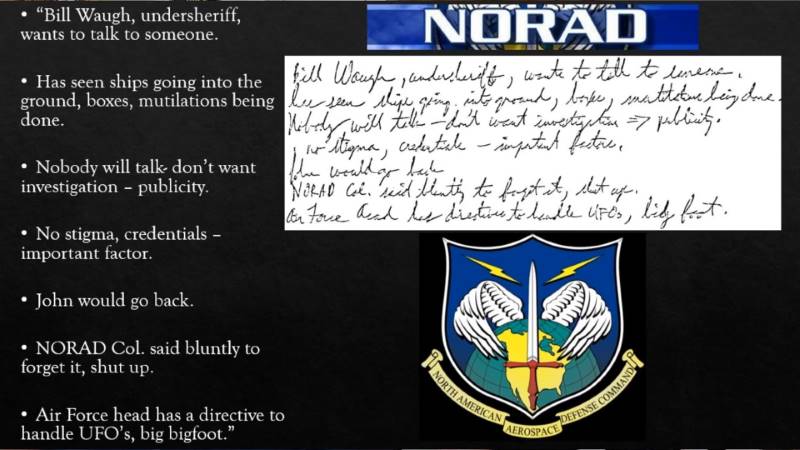 • “Bill Waugh, undersheriff,
wants to talk to someone.
• Has seen ships going into the
ground, boxes, mutilations being
done.
• Nobody will talk- don’t want
investigation – publicity.
• No stigma, credentials –
important factor.
• John would go back.
• NORAD Col. said bluntly to
forget it, shut up.
• Air Force head has a directive to
handle UFO’s, big bigfoot.”
NORAD
Bill Waugh, undersheriff, wants to talk to someone.
has seen ships going into ground, boxes, mutilations being done.
Nobody will talk – don't want investigation => publicity.
, no stigma, credentials – important factors.
John would go back
NORAD Col. said bluntly to forget it, shut up.
Air Force head has directives to handle UFOs, big foot.
NORTH AMERICAN
AEROSPACE
DEFENSE COMMAND